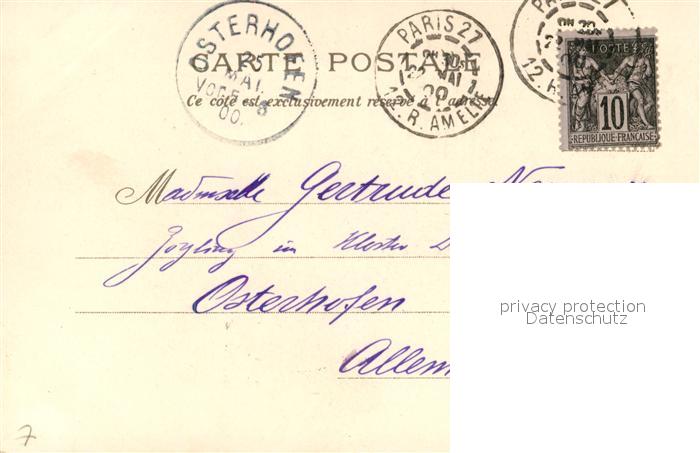 OSTERHOFEN
MAI.
VORM. 8
00.
PARIS 27
MAI
00
12. R. AMELIE
CARTE POSTALE
Ce côté est exclusivement réservé à l'adresse.
POSTES
10
REPUBLIQUE FRANÇAISE
Mademoiselle Gertrude
Zögling im Kloster
Osterhofen
Allem
privacy protection
Datenschutz
7